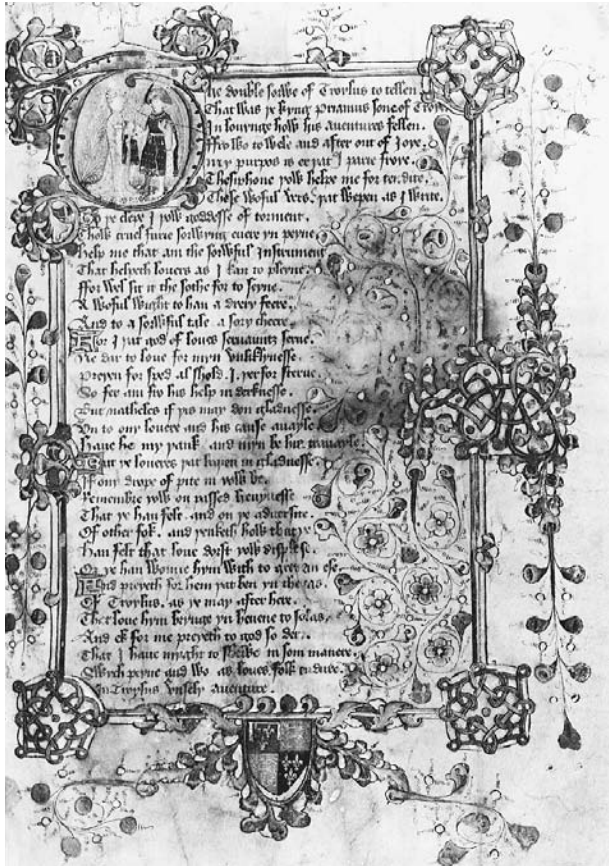 The double sorwe of Troylus to tellen
That was þe kyng Priamus sone of Troye
In louynge how his auentures fellen
ffro wo to wele and after out of Joye
my purpos is er þat I parte froye
Thesiphone þow helpe me for tendite
Those woful vers þat wepen as I write
To þe clepe I þow goddesse of torment
Thow cruel furie sorwyng euere yn peyne
help me that am the sorwful Instrument
That helpeth louers as I kan to pleyne
ffor wel sit it the sothe for to seyne
A woful wight to han a drery feere
And to a sorwful tale a sory cheere
For I þat god of loues seruauntz serue
Ne dar to loue for myn vnliklynesse
Preyen for sped al shold I þerfor sterue
So fer am fro his help in derknesse
But natheles if þis may don gladnesse
Vn to ony louere and his cause auayle
Haue he my þank and myn be his trauayle
But ye loueres þat baþen in gladnesse
If ony drope of pite in yow be
Remembre yow on passed heuynesse
That ye han felt and on þe aduersite
Of other folk and þenketh how that ye
Han felt that loue dorst yow displese
Or ye han wonne hym with to gret an ese
And preyeth for hem þat ben yn the cas
Of Troylus as ye may after here
That loue hym brynge yn heuene to solas
And ek for me preyeth to god so dere
That I haue myght to shewe in som manere
Swich peyne and wo as loues folk endure
In Troylus vnsely auenture